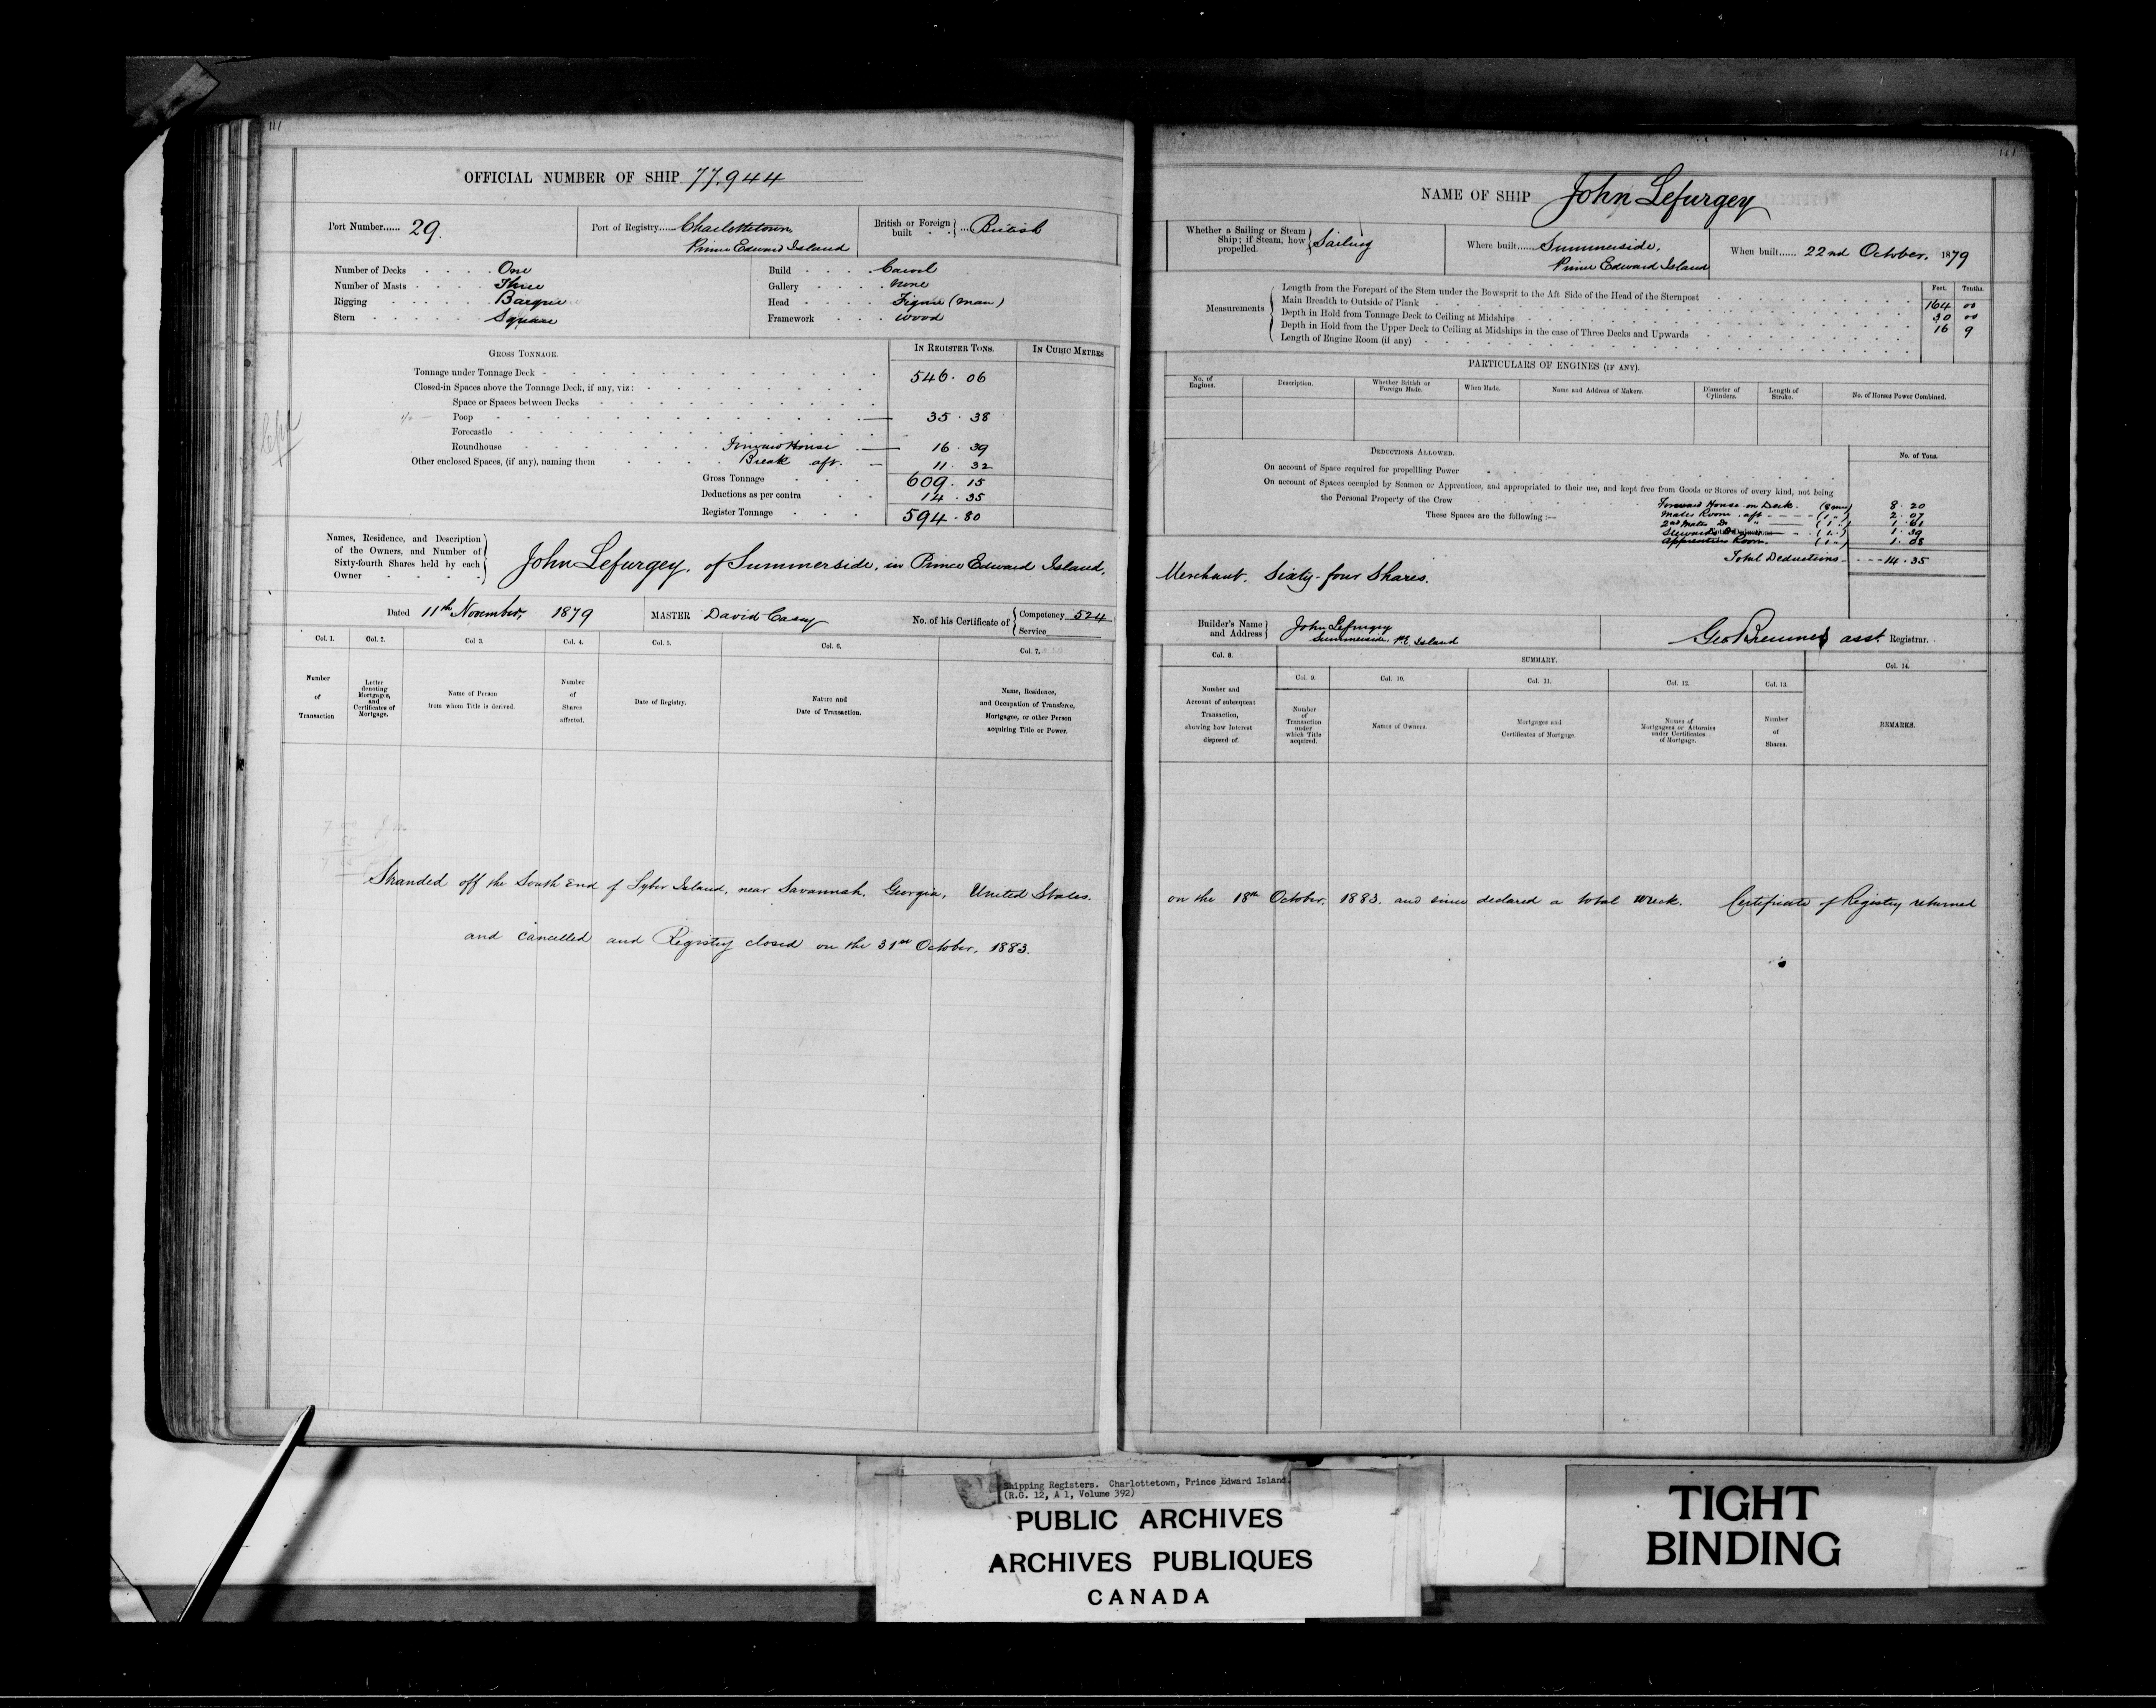 OFFICIAL NUMBER OF SHIP 77.944
Port Number...... 29.
Port of Registry...... Charlottetown,
Prince Edward Island
British or Foreign built } ... British
Number of Decks . . . . One
Number of Masts . . . . Three
Rigging . . . . . Barque
Stern . . . . . . Square
Build . . . . Carvel
Gallery . . . . None
Head . . . . Figure (man)
Framework . . . wood
GROSS TONNAGE.
IN REGISTER TONS.
IN CUBIC METRES
Tonnage under Tonnage Deck - 546. 06
Closed-in Spaces above the Tonnage Deck, if any, viz:
Space or Spaces between Decks
Poop 35. 38
Forecastle
Roundhouse Forward House 16. 39
Other enclosed Spaces, (if any), naming them Break aft. 11. 32
Gross Tonnage 609. 15
Deductions as per contra 14. 35
Register Tonnage 594. 80
Names, Residence, and Description
of the Owners, and Number of
Sixty-fourth Shares held by each
Owner
John Lefurgey, of Summerside, in Prince Edward Island,
Dated 11th November, 1879
MASTER David Casey
No. of his Certificate of { Competency 524
Service
Col. 1. Col. 2. Col 3. Col. 4. Col. 5. Col. 6. Col. 7.
Number of Transaction
Letter denoting Mortgages, and Certificates of Mortgage.
Name of Person from whom Title is derived.
Number of Shares affected.
Date of Registry.
Nature and Date of Transaction.
Name, Residence, and Occupation of Transferee, Mortgagee, or other Person acquiring Title or Power.
Stranded off the South End of Tyber Island, near Savannah, Georgia, United States.
and cancelled and Registry closed on the 31st October, 1883.
NAME OF SHIP John Lefurgey
Whether a Sailing or Steam
Ship; if Steam, how
propelled. } Sailing
Where built...... Summerside,
Prince Edward Island
When built...... 22nd October, 1879
Measurements
Feet. Tenths.
Length from the Forepart of the Stem under the Bowsprit to the Aft Side of the Head of the Sternpost 164 00
Main Breadth to Outside of Plank 30 00
Depth in Hold from Tonnage Deck to Ceiling at Midships 16 9
Depth in Hold from the Upper Deck to Ceiling at Midships in the case of Three Decks and Upwards
Length of Engine Room (if any)
PARTICULARS OF ENGINES (IF ANY).
No. of Engines.
Description.
Whether British or Foreign Made.
When Made.
Name and Address of Makers.
Diameter of Cylinders.
Length of Stroke.
No. of Horses Power Combined.
DEDUCTIONS ALLOWED.
No. of Tons.
On account of Space required for propellling Power
On account of Spaces occupied by Seamen or Apprentices, and appropriated to their use, and kept free from Goods or Stores of every kind, not being
the Personal Property of the Crew
These Spaces are the following :—
Forward House on Deck. (8 men) 8. 20
Mates Room aft (1 ") 2. 07
2nd Mates Do " (1 ") 1. 61
Stewards Do (1 ") 1. 39
Apprentices Room. (1 ") 1. 08
Total Deductions - 14. 35
Merchant. Sixty-four Shares.
Builder's Name
and Address } John Lefurgey
Summerside. P.E. Island
Geo Bremner asst. Registrar.
Col. 8. SUMMARY. Col. 14.
Col. 9. Col. 10. Col. 11. Col. 12. Col. 13.
Number and Account of subsequent Transaction, showing how Interest disposed of.
Number of Transaction under which Title acquired.
Names of Owners.
Mortgages and Certificates of Mortgage.
Names of Mortgagees or Attornies under Certificates of Mortgage.
Number of Shares.
REMARKS.
on the 18th October, 1883. and since declared a total wreck. Certificate of Registry returned
Shipping Registers. Charlottetown, Prince Edward Island.
(R.G. 12, A 1, Volume 392)
PUBLIC ARCHIVES
ARCHIVES PUBLIQUES
CANADA
TIGHT
BINDING